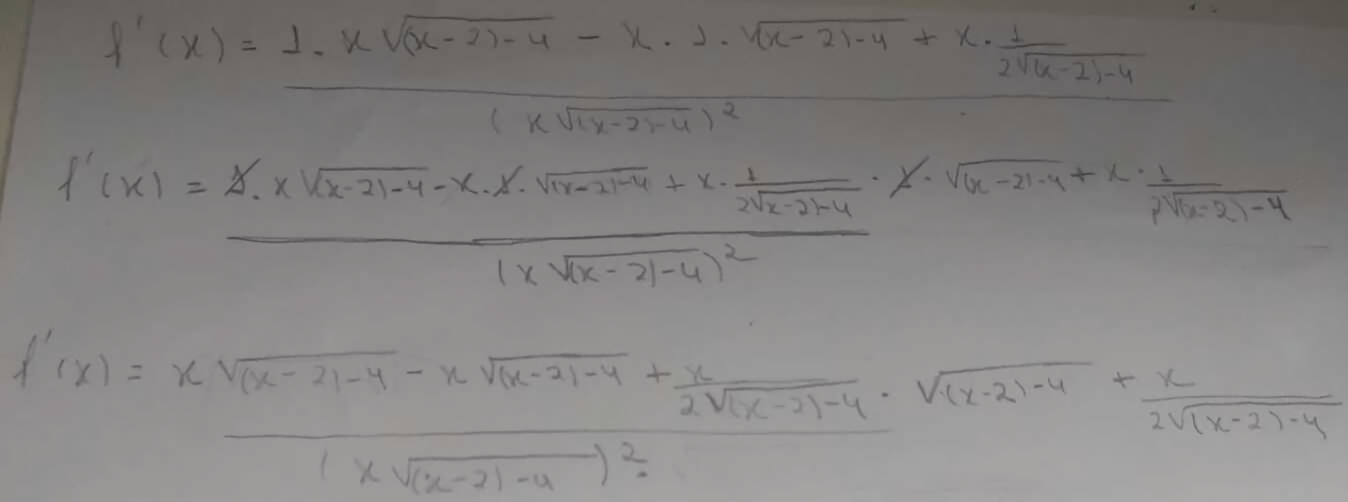 f'(x) = 1 · x√((x-2)-4) - x · 1 · √((x-2)-4) + x · 1/(2√((x-2)-4))
(x√((x-2)-4))²
f'(x) = 1 · x√((x-2)-4) - x · 1 · √((x-2)-4) + x · 1/(2√((x-2)-4)) · 1 · √((x-2)-4) + x · 1/(2√((x-2)-4))
(x√((x-2)-4))²
f'(x) = x√((x-2)-4) - x√((x-2)-4) + x/(2√((x-2)-4)) · √((x-2)-4) + x/(2√((x-2)-4))
(x√((x-2)-4))²